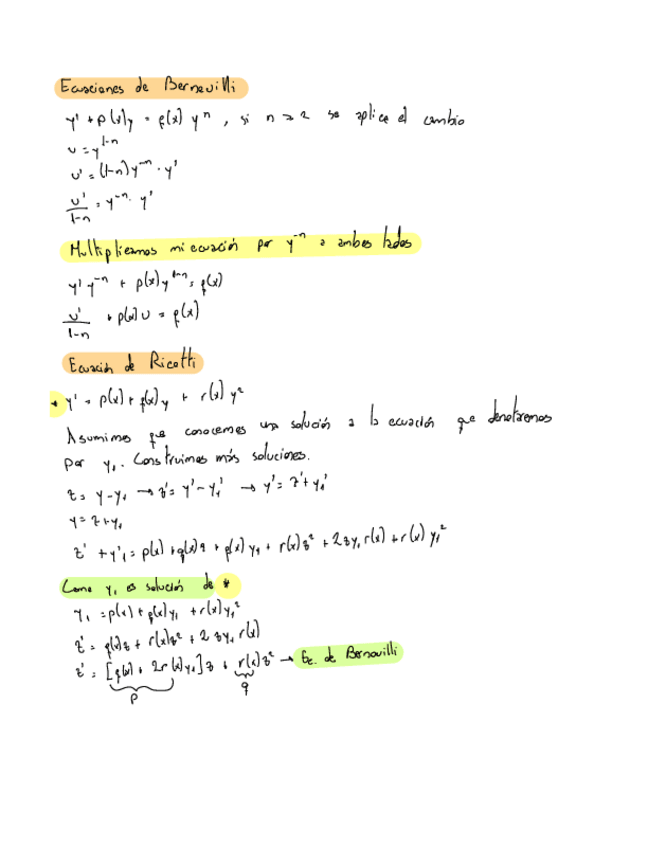 Ecuaciones de Bernouilli
y' + p(x)y = q(x) yⁿ, si n ≥ 2 se aplica el cambio
u = y^{1-n}
u' = (1-n)y^{-n} · y'
u'/(1-n) = y^{-n} · y'
Multiplicamos mi ecuación por y^{-n} a ambos lados
y' y^{-n} + p(x) y^{1-n} = q(x)
u'/(1-n) + p(x) u = q(x)
Ecuación de Ricatti
* y' = p(x) + q(x) y + r(x) y²
Asumimos que conocemos una solución a la ecuación que denotaremos
por y₁. Construimos más soluciones.
z = y - y₁ → z' = y' - y₁' → y' = z' + y₁'
y = z + y₁
z' + y'₁ = p(x) + q(x) z + q(x) y₁ + r(x) z² + 2zy₁ r(x) + r(x) y₁²
Como y₁ es solución de *
y₁ = p(x) + q(x) y₁ + r(x) y₁²
z' = q(x) z + r(x) z² + 2 z y₁ r(x)
z' = [q(x) + 2r(x) y₁] z + r(x) z² → Ec. de Bernouilli
p q